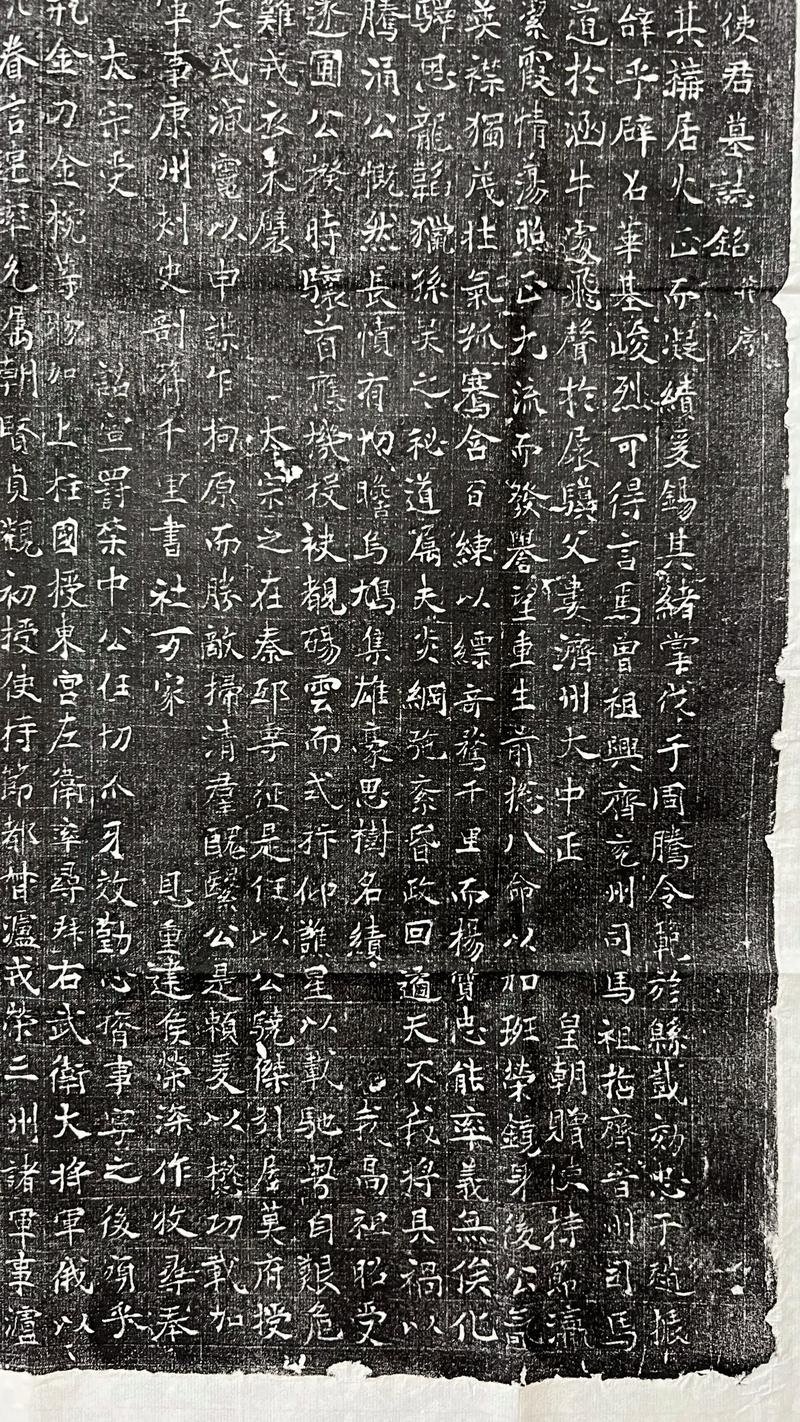 使君墓誌銘并序
其搆居火正而凝績爰錫其緒掌伐于周騰令範於縣鼓効忠于趙振
辭乎辟名華基峻烈可得言焉曾祖興齊兗州司馬祖括齊晉州司馬
道於涵牛處飛聲於展驥父婁濟州大中正 皇朝贈使持節瀛
潔霞情蕩照正九流而發譽望重生前摠八命以加班榮鏡身後公
英襟獨茂壯氣孤騫含百練以縹奇蓄千里而楊質忠能率義無俟化
驊思龍韜獵孫吳之秘道屬夫炎綱弛紊昏政回遹天不我將具禍以
騰涌公慨然長憤有切瞻烏鳩集雄豪思樹名績 我高祖昭受
逐圃公揆時驤首應機投袂覩碭雲而式抃仰譙星以載馳粤自艱危
難戎衣未襞 太宗之在秦邸專征是任以公驍傑引居莫府授
天或滅竈以申謀乍拘原而勝敵掃清羣醜繄公是賴爰以懋功載加
軍事康州刺史剖符千里書社万家 恩重建侯榮深作牧尋奉
太宗受 詔宣罸榮中公任切爪牙效勤心膂事寧之後頒乎
瓶金刀金椀等物加上柱國授東宮左衛率尋拜右武衛大將軍俄以
眷言建率允属朝賢貞觀初授使持節都督瀘戎榮三州諸軍事瀘